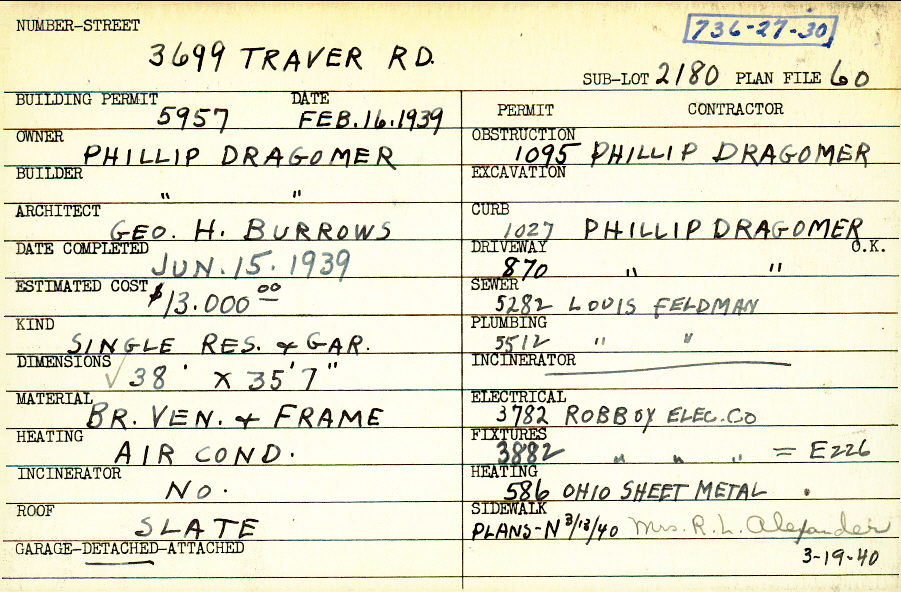 NUMBER-STREET
736-27-30
3699 TRAVER RD.
SUB-LOT 2180 PLAN FILE 60
BUILDING PERMIT DATE
5957 FEB.16.1939
OWNER
PHILLIP DRAGOMER
BUILDER
" "
ARCHITECT
GEO. H. BURROWS
DATE COMPLETED
JUN.15.1939
ESTIMATED COST $13.000 00
KIND
SINGLE RES. & GAR.
DIMENSIONS
✓ 38' X 35' 7"
MATERIAL
BR. VEN. & FRAME
HEATING
AIR COND.
INCINERATOR
NO.
ROOF
SLATE
GARAGE-DETACHED-ATTACHED
PERMIT CONTRACTOR
OBSTRUCTION
1095 PHILLIP DRAGOMER
EXCAVATION
CURB
1027 PHILLIP DRAGOMER
DRIVEWAY O.K.
870 " "
SEWER
5282 LOUIS FELDMAN
PLUMBING
5512 " "
INCINERATOR
ELECTRICAL
3782 ROBBOY ELEC.CO
FIXTURES
3882 " " " = E226
HEATING
586 OHIO SHEET METAL .
SIDEWALK
PLANS-N 3/13/40 Mrs. R. L. Alexander
3-19-40